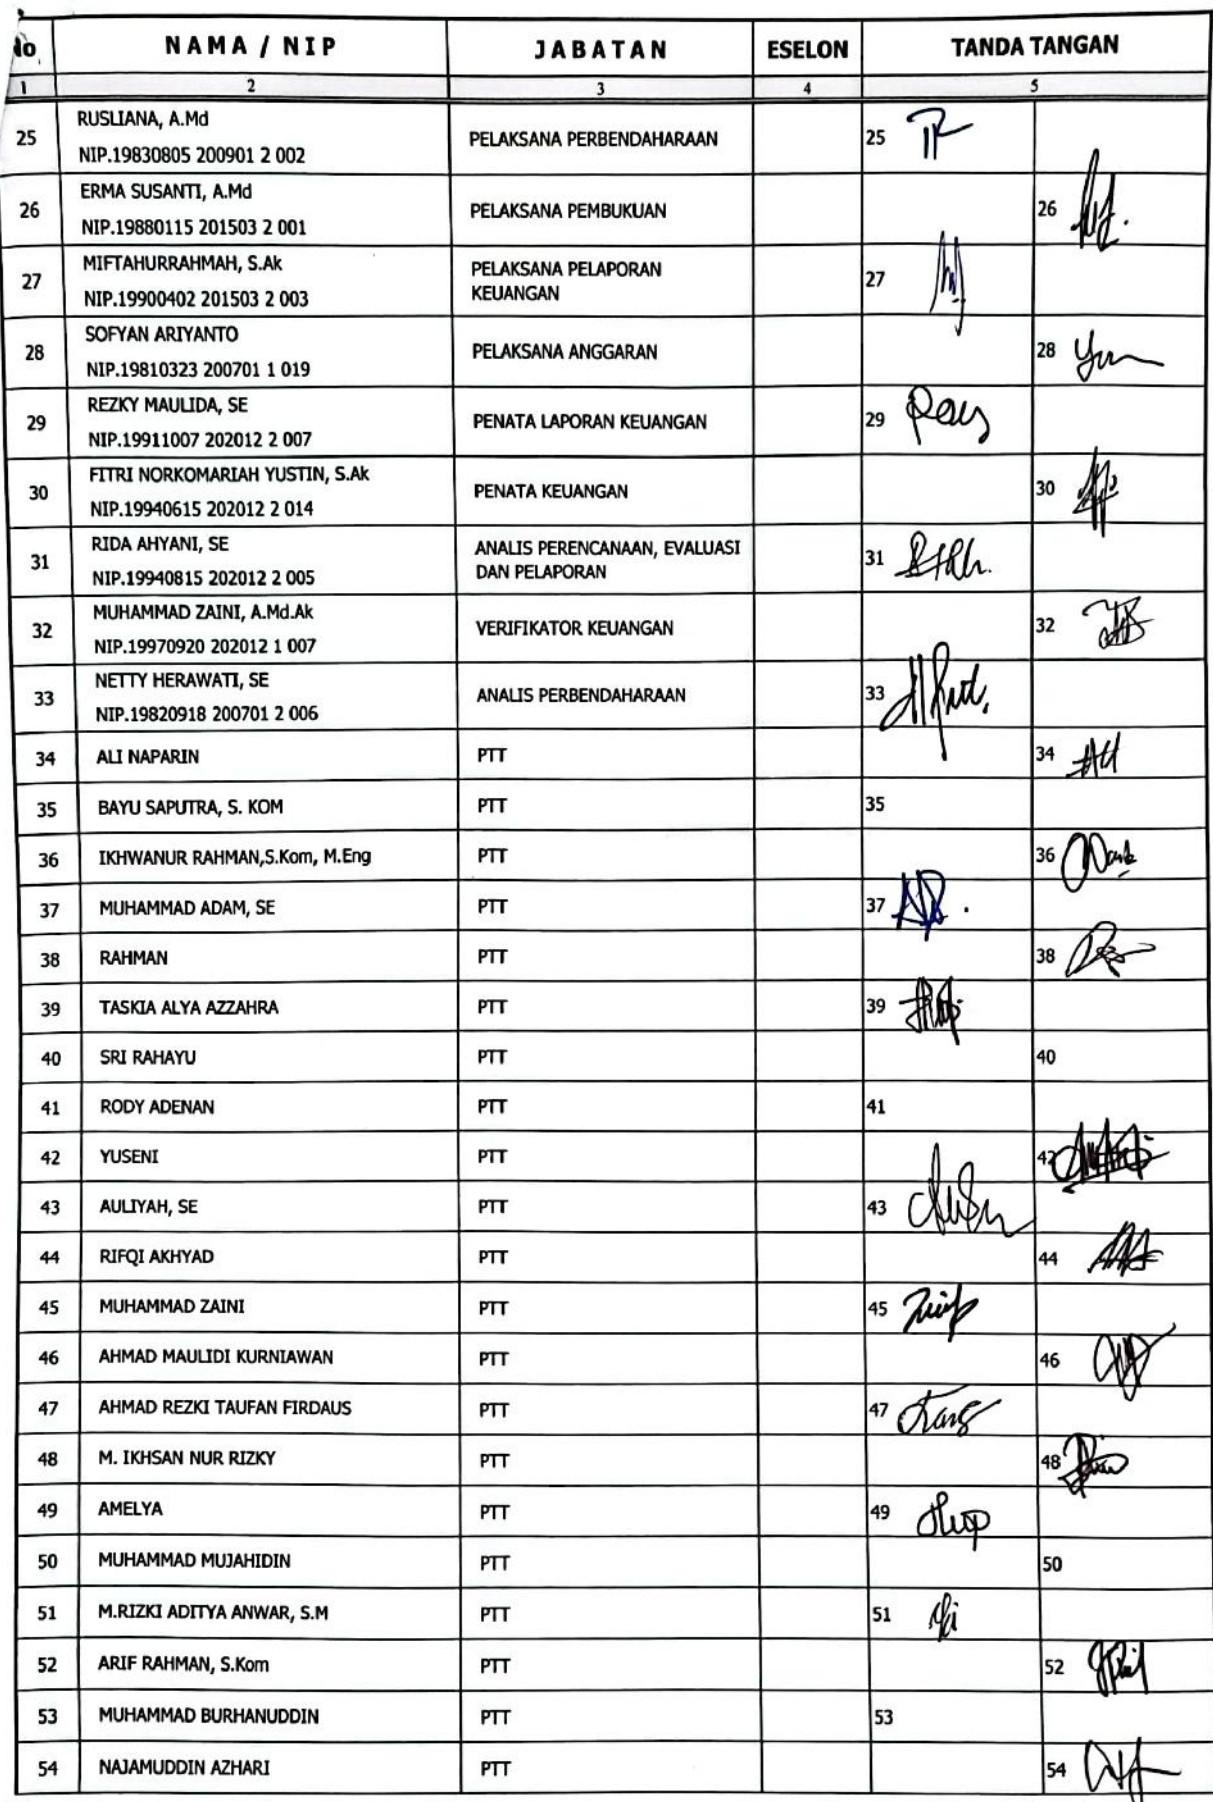 No NAMA / NIP JABATAN ESELON TANDA TANGAN
1 2 3 4 5
25 RUSLIANA, A.Md
NIP.19830805 200901 2 002 PELAKSANA PERBENDAHARAAN 25
26 ERMA SUSANTI, A.Md
NIP.19880115 201503 2 001 PELAKSANA PEMBUKUAN 26
27 MIFTAHURRAHMAH, S.Ak
NIP.19900402 201503 2 003 PELAKSANA PELAPORAN
KEUANGAN 27
28 SOFYAN ARIYANTO
NIP.19810323 200701 1 019 PELAKSANA ANGGARAN 28
29 REZKY MAULIDA, SE
NIP.19911007 202012 2 007 PENATA LAPORAN KEUANGAN 29
30 FITRI NORKOMARIAH YUSTIN, S.Ak
NIP.19940615 202012 2 014 PENATA KEUANGAN 30
31 RIDA AHYANI, SE
NIP.19940815 202012 2 005 ANALIS PERENCANAAN, EVALUASI
DAN PELAPORAN 31
32 MUHAMMAD ZAINI, A.Md.Ak
NIP.19970920 202012 1 007 VERIFIKATOR KEUANGAN 32
33 NETTY HERAWATI, SE
NIP.19820918 200701 2 006 ANALIS PERBENDAHARAAN 33
34 ALI NAPARIN PTT 34
35 BAYU SAPUTRA, S. KOM PTT 35
36 IKHWANUR RAHMAN,S.Kom, M.Eng PTT 36
37 MUHAMMAD ADAM, SE PTT 37
38 RAHMAN PTT 38
39 TASKIA ALYA AZZAHRA PTT 39
40 SRI RAHAYU PTT 40
41 RODY ADENAN PTT 41
42 YUSENI PTT 42
43 AULIYAH, SE PTT 43
44 RIFQI AKHYAD PTT 44
45 MUHAMMAD ZAINI PTT 45
46 AHMAD MAULIDI KURNIAWAN PTT 46
47 AHMAD REZKI TAUFAN FIRDAUS PTT 47
48 M. IKHSAN NUR RIZKY PTT 48
49 AMELYA PTT 49
50 MUHAMMAD MUJAHIDIN PTT 50
51 M.RIZKI ADITYA ANWAR, S.M PTT 51
52 ARIF RAHMAN, S.Kom PTT 52
53 MUHAMMAD BURHANUDDIN PTT 53
54 NAJAMUDDIN AZHARI PTT 54